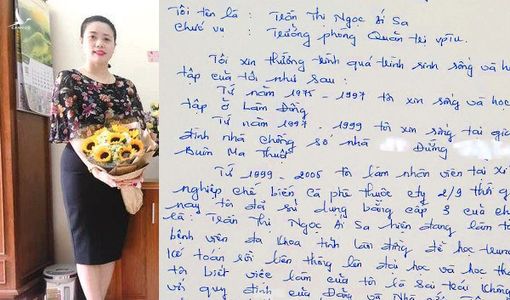 Tôi tên là : Trần Thị Ngọc Ái Sa
Chức vụ : Trưởng phòng Quản trị VPTU.
Tôi xin tường trình quá trình sinh sống và học
tập của tôi như sau :
Từ năm 1975 - 1997 tôi xin sống và học
tập ở Lâm Đồng
Từ năm 1997 - 1999 tôi xin sống tại gia
đình nhà chồng số nhà Đường
Buôn Ma Thuột
Từ 1999 - 2005 tôi làm nhân viên tại xí
nghiệp chế biến Cà phê thuộc cty 2/9 thời
này tôi đã sử dụng bằng cấp 3 của
là : Trần Thị Ngọc Ái Sa hiện đang làm
bệnh viện đa khoa tỉnh Lâm đồng để học trung
kế toán rồi liên thông lên đại học và học
tôi biết việc làm của tôi là Sai trái không
với quy định của Đảng và